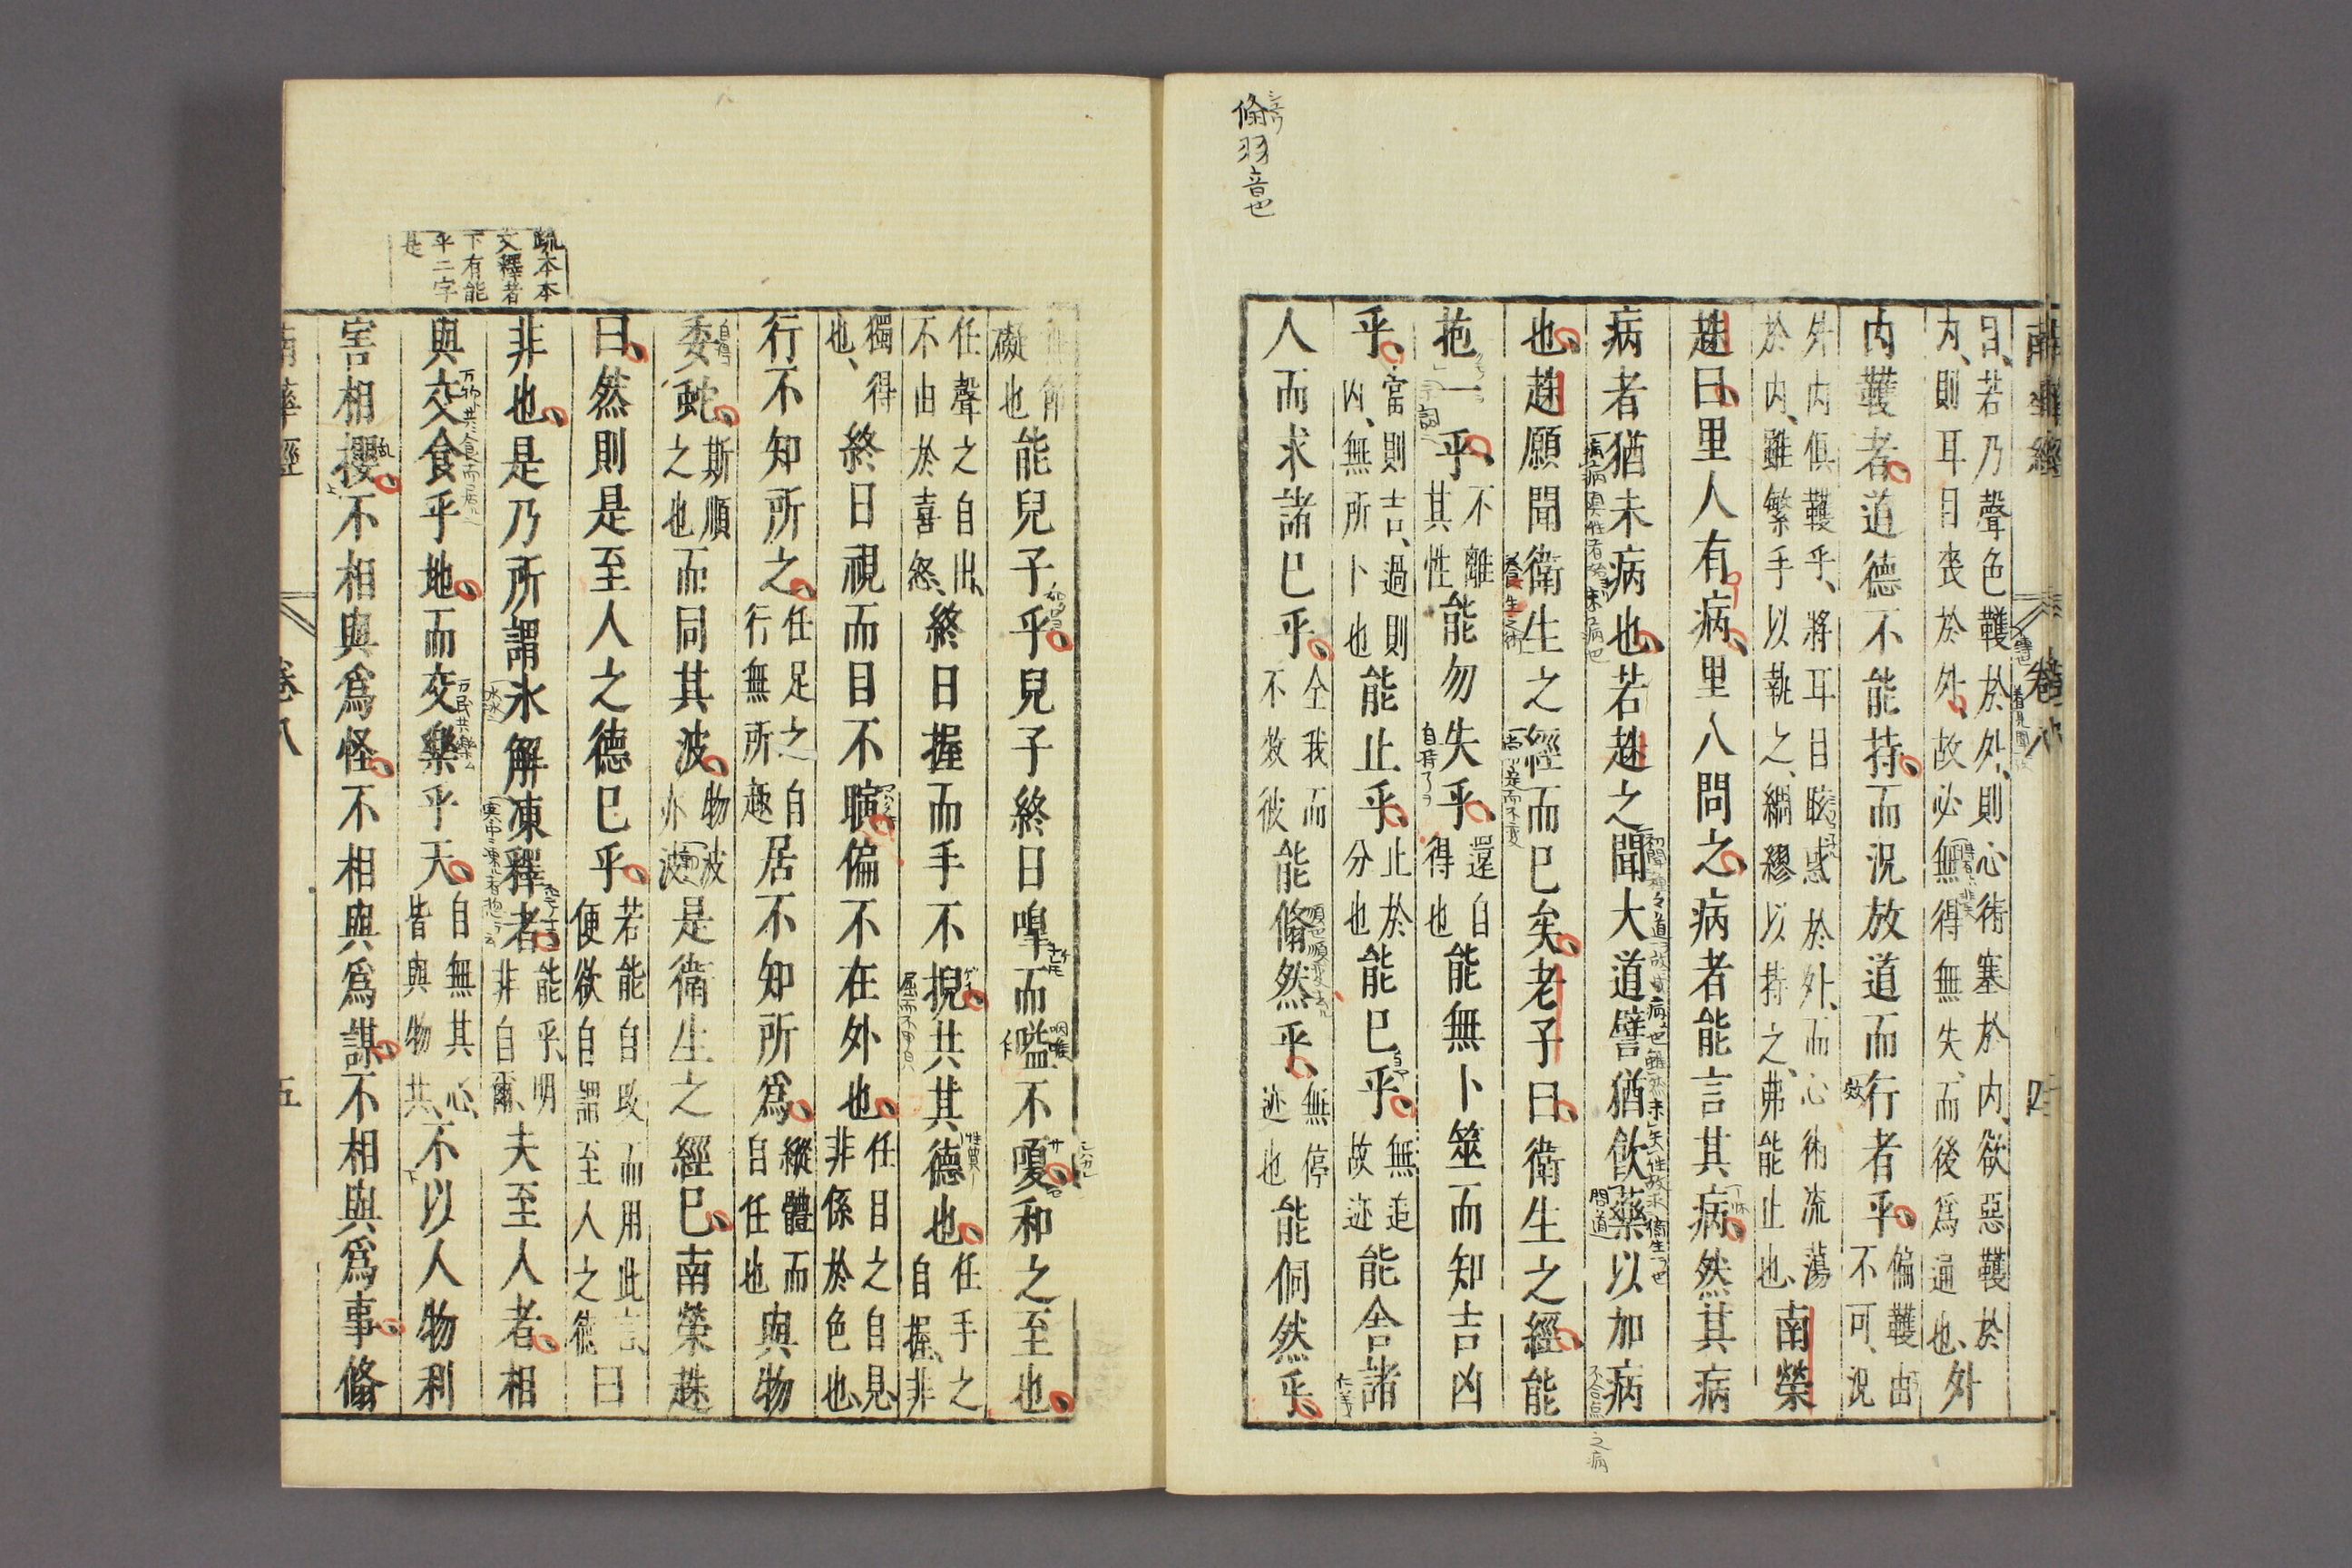 南華經 卷八 四
目、若乃聲色韄於外、則心術塞於内、欲惡韄於
内、則耳目喪於外、故必無得無失、而後爲通也、外
内韄者道德不能持而況放道而行者乎偏韄由
不可、況
外内俱韄乎、將耳目眩惑於外、而心術流蕩
於内、雖繁手以執之、綢繆以持之、弗能止也、南榮
趎曰里人有病里人問之病者能言其病然其病
病者猶未病也若趎之聞大道譬猶飮藥以加病
也趎願聞衛生之經而已矣老子曰衛生之經能
抱一乎不離
其性能勿失乎還自
得也能無卜筮而知吉凶
乎當則吉、過則
凶、無所卜也能止乎止於
分也能已乎無追
故迹能舍諸
人而求諸已乎全我而
不效彼能翛然乎無停
迹也能侗然乎
翛羽音也
礙也能兒子乎兒子終日嘷而嗌不嗄和之至也
任聲之自出、
不由於喜怒、終日握而手不掜共其德也任手之
自握、非
獨得
也、終日視而目不瞚偏不在外也任目之自見、
非係於色也、
行不知所之任足之自
行無所趣居不知所爲縱體而
自任也與物
委蛇斯順
之也而同其波物波
亦波是衛生之經已南榮趎
曰然則是至人之德已乎若能自改而用此言、
便欲自謂至人之德曰
非也是乃所謂冰解凍釋者能乎、明
非自爾、夫至人者相
與交食乎地而交樂乎天自無其心、
皆與物共、不以人物利
害相攖不相與爲怪不相與爲謀不相與爲事翛
疏本本
文釋者
下有能
乎二字
是
南華經 卷八 五